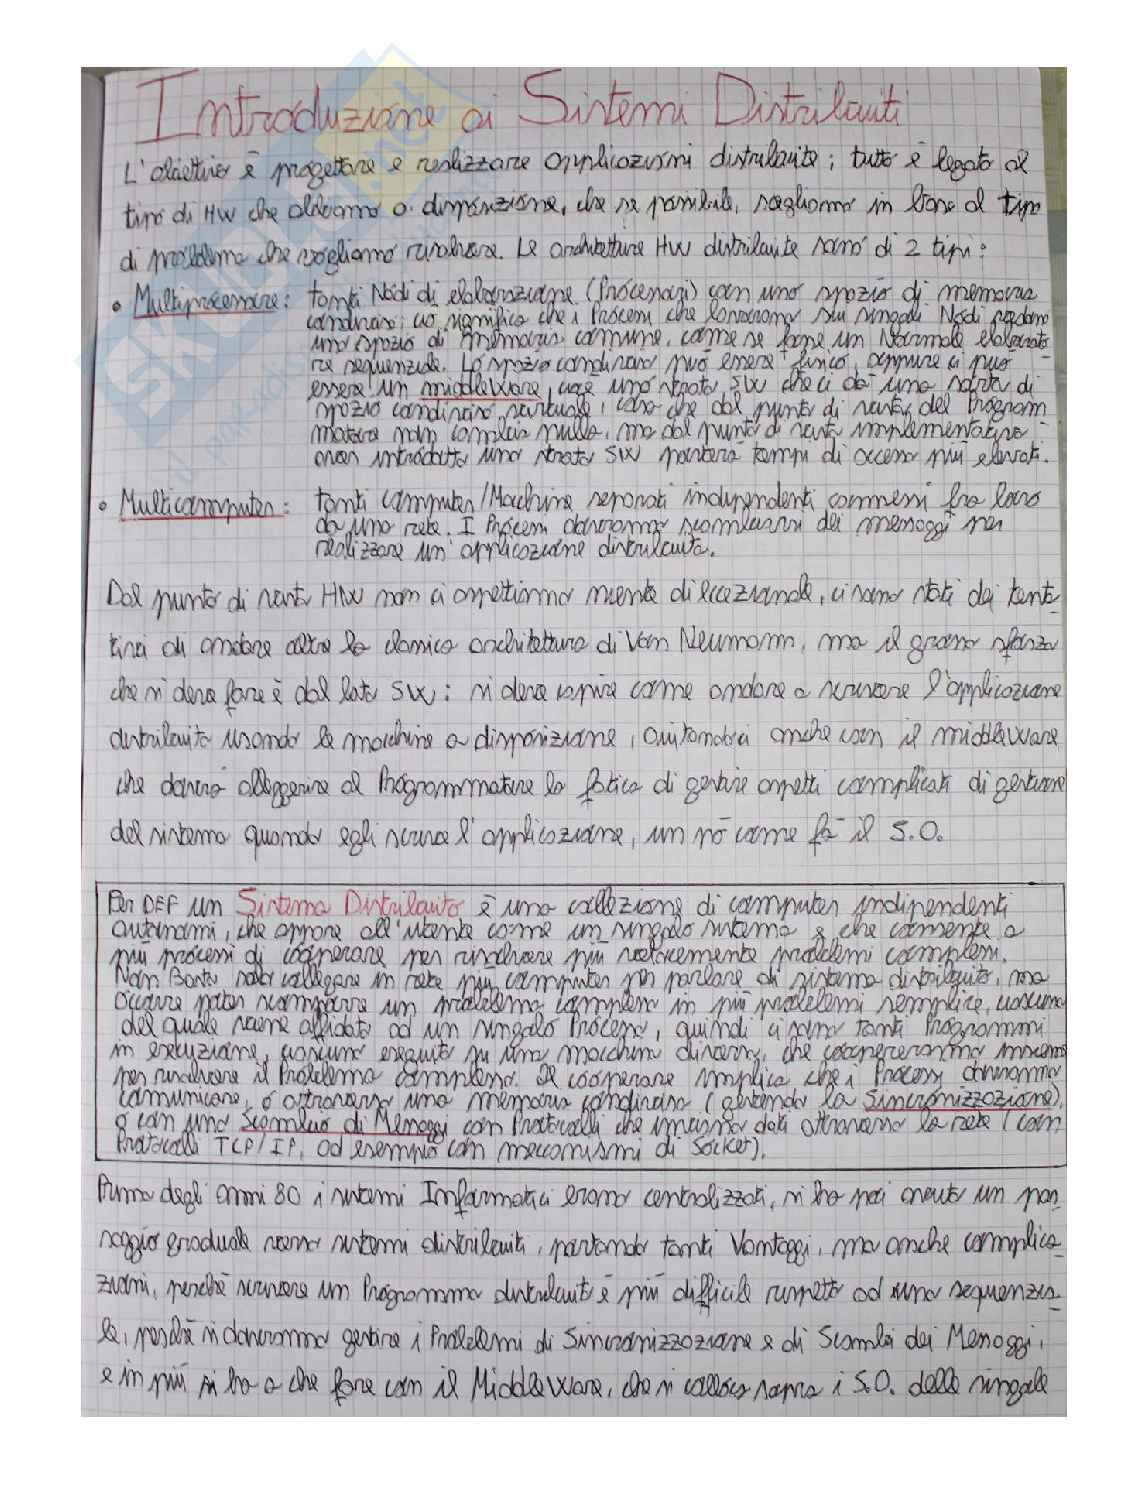 Introduzione ai Sistemi Distribuiti
L'obiettivo è progettare e realizzare applicazioni distribuite; tutto è legato al
tipo di HW che abbiamo a disposizione, che se possibile, scegliamo in base al tipo
di problema che vogliamo risolvere. Le architetture HW distribuite sono di 2 tipi:
• Multiprocessore: tanti Nodi di elaborazione (Processori) con uno spazio di memoria
condiviso; ciò significa che i Processi che lavorano sui singoli Nodi vedono
uno spazio di memoria comune, come se fosse un Normale elaborato-
re sequenziale. Lo spazio condiviso può essere fisico, oppure ci può
essere un middleWare, cioè uno strato SW che ci dà una sorta di
spazio condiviso virtuale, cosa che dal punto di vista del Program
matore non cambia nulla, ma dal punto di vista implementativo
aver introdotto uno strato SW porterà tempi di accesso più elevati.
• Multicomputer: tanti computer/Macchine separati indipendenti connessi fra loro
da una rete. I Processi dovranno scambiarsi dei messaggi per
realizzare un'applicazione distribuita.
Dal punto di vista HW non ci aspettiamo niente di eccezionale, ci sono stati dei tenta-
tivi di andare oltre la classica architettura di Von Neumann, ma il grosso sforzo
che si deve fare è dal lato SW: si deve capire come andare a scrivere l'applicazione
distribuita usando le macchine a disposizione, aiutandoci anche con il middleWare
che dovrà alleggerire al Programmatore la fatica di gestire aspetti complicati di gestione
del sistema quando egli scrive l'applicazione, un pò come fà il S.O.
Per DEF un Sistema Distribuito è una collezione di computer indipendenti
autonomi, che appare all'utente come un singolo sistema e che consente a
più processi di cooperare per risolvere più velocemente problemi complessi.
Non Basta solo collegare in rete più computer per parlare di sistema distribuito, ma
occorre poter scomporre un problema complesso in più problemi semplice, ciascuno
del quale viene affidato ad un singolo Processo, quindi ci sono tanti Programmi
in esecuzione, ciascuno eseguito su una macchina diversa, che coopereranno insieme
per risolvere il Problema complesso. Il cooperare implica che i Processi dovranno
comunicare, o attraverso una memoria condivisa (gestendo la Sincronizzazione),
o con uno Scambio di Messaggi con Protocolli che inviano dati attraverso la rete (con
Protocolli TCP/IP, ad esempio con meccanismi di Socket).
Prima degli anni 80 i sistemi Informatici erano centralizzati, si ha poi avuto un pas-
saggio graduale verso sistemi distribuiti, portando tanti Vantaggi, ma anche complica-
zioni, perché scrivere un Programma distribuito è più difficile rispetto ad uno sequenzia-
le, perché si dovranno gestire i Problemi di Sincronizzazione e di Scambi dei Messaggi,
e in più si ha a che fare con il MiddleWare, che si colloca sopra i S.O. delle singole